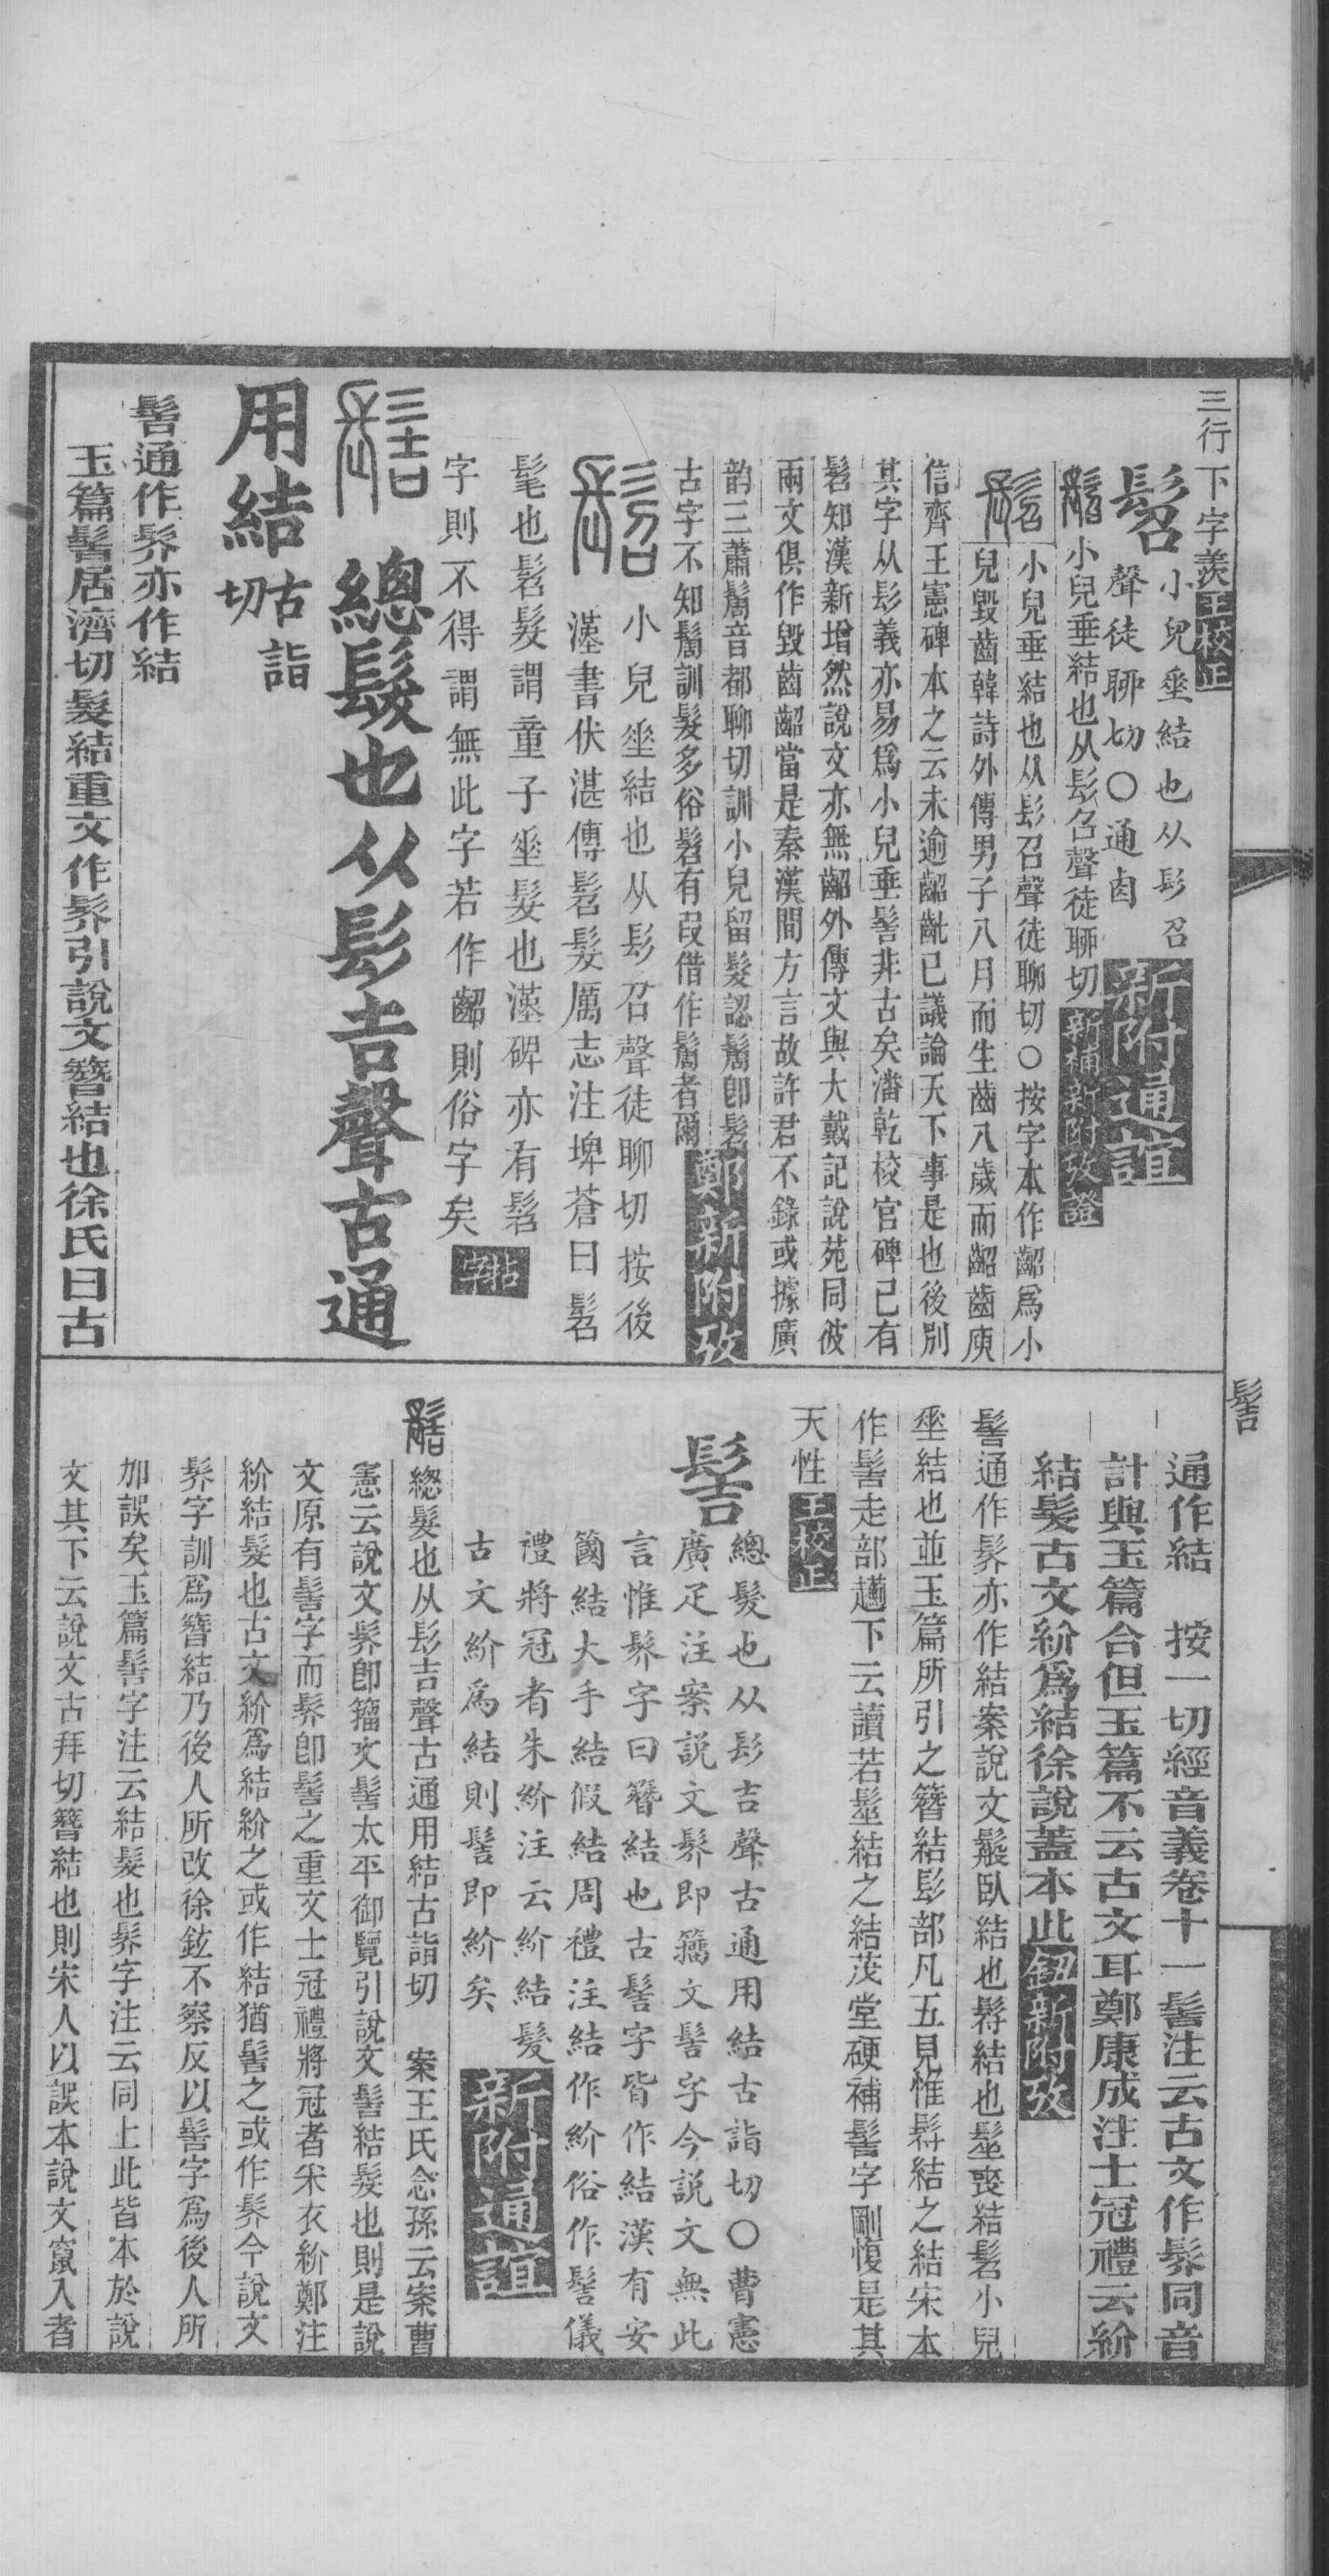 三行下字羨王校正
髫小兒𡍮結也从髟召
聲徒聊切〇通卤新附通誼
髫小兒垂結也从髟召聲徒聊切新補新附攷證
髫小兒垂結也从髟召聲徒聊切〇按字本作齠爲小
兒毀齒韓詩外傳男子八月而生齒八歲而齠齒庾
信齊王憲碑本之云未逾齠齔已議論天下事是也後別
其字从髟義亦易爲小兒垂髻非古矣潘乾校官碑已有
髫知漢新增然說文亦無齠外傳文與大戴記說苑同彼
兩文俱作毀齒齠當是秦漢間方言故許君不錄或據廣
韵三蕭鬌音都聊切訓小兒留髮認鬌卽髫
古字不知鬌訓髮多俗髫有叚借作鬌者爾鄭新附攷
髫小兒𡍮結也从髟召聲徒聊切按後
漢書伏湛傳髫髮厲志注埤蒼曰髫
髦也髫髮謂童子𡍮髮也漢碑亦有髫
字則不得謂無此字若作齠則俗字矣拈字
髻總髮也从髟吉聲古通
用結古詣切
髻通作髤亦作結
玉篇髻居濟切髮結重文作髤引說文簪結也徐氏曰古
髻
通作結 按一切經音義卷十一髻注云古文作髤同音
計與玉篇合但玉篇不云古文耳鄭康成注士冠禮云紒
結髮古文紒爲結徐說蓋本此鈕新附攷
髻通作髤亦作結案說文鬆臥結也髵結也髽喪結髫小兒
𡍮結也並玉篇所引之簪結髟部凡五見惟髵結之結宋本
作髻走部趬下云讀若髽結之結茂堂硬補髻字剛愎是其
天性王校正
髻總髮也从髟吉聲古通用結古詣切〇曹憲
廣疋注案説文髤即籒文髻字今説文無此
言惟髤字曰簪結也古髻字皆作結漢有安
箇結大手結假結周禮注結作紒俗作髻儀
禮將冠者朱紒注云紒結髮
古文紒爲結則髻即紒矣新附通誼
髻總髮也从髟吉聲古通用結古詣切 案王氏念孫云案曹
憲云說文髤卽籒文髻太平御覽引說文髻結髮也則是說
文原有髻字而髤卽髻之重文士冠禮將冠者采衣紒鄭注
紒結髮也古文紒爲結紒之或作結猶髻之或作髤今說文
髤字訓爲簪結乃後人所改徐鉉不察反以髻字爲後人所
加誤矣玉篇髻字注云結髮也髤字注云同上此皆本於說
文其下云說文古拜切簪結也則宋人以誤本說文竄入者